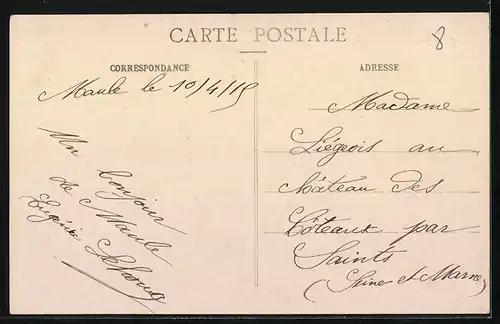 CARTE POSTALE
8
CORRESPONDANCE
Maule le 10/4/15
Un bonjour
de Maule
Eugénie
ADRESSE
Madame
Liégeois au
Château des
Côteaux par
Saints
(Seine et Marne)